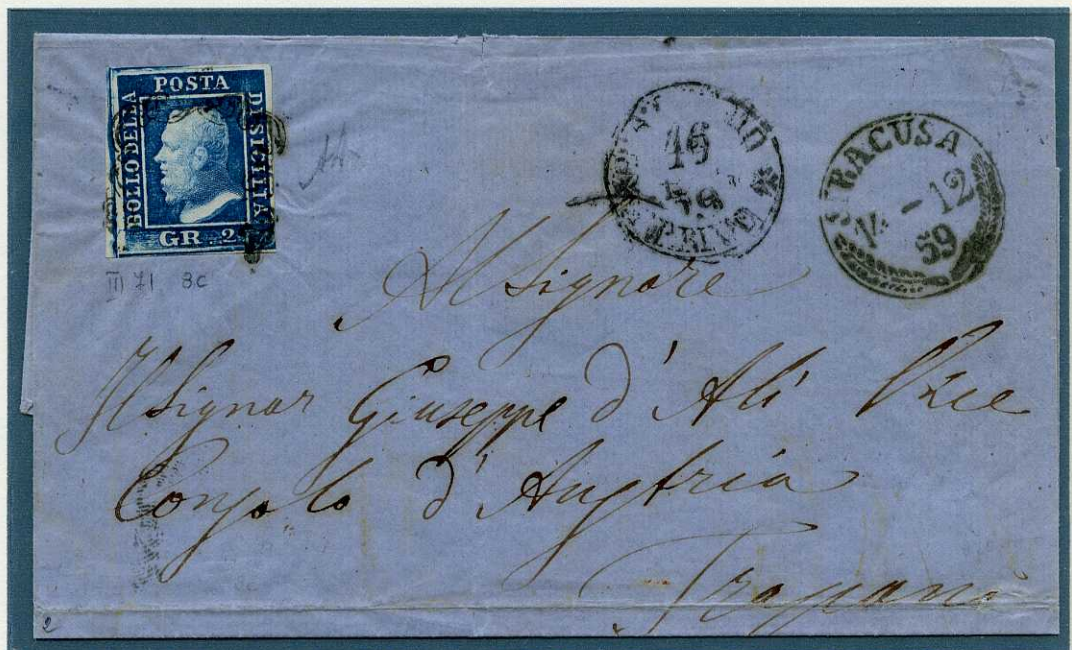 POSTA
BOLLO DELLA
DI SICILIA
GR. 2
III 71 3c
16
PRIVO
SIRACUSA
12
59
Al Signore
Il Signor Giuseppe d'Alì Vice
Consolo d'Austria
Trapani
2